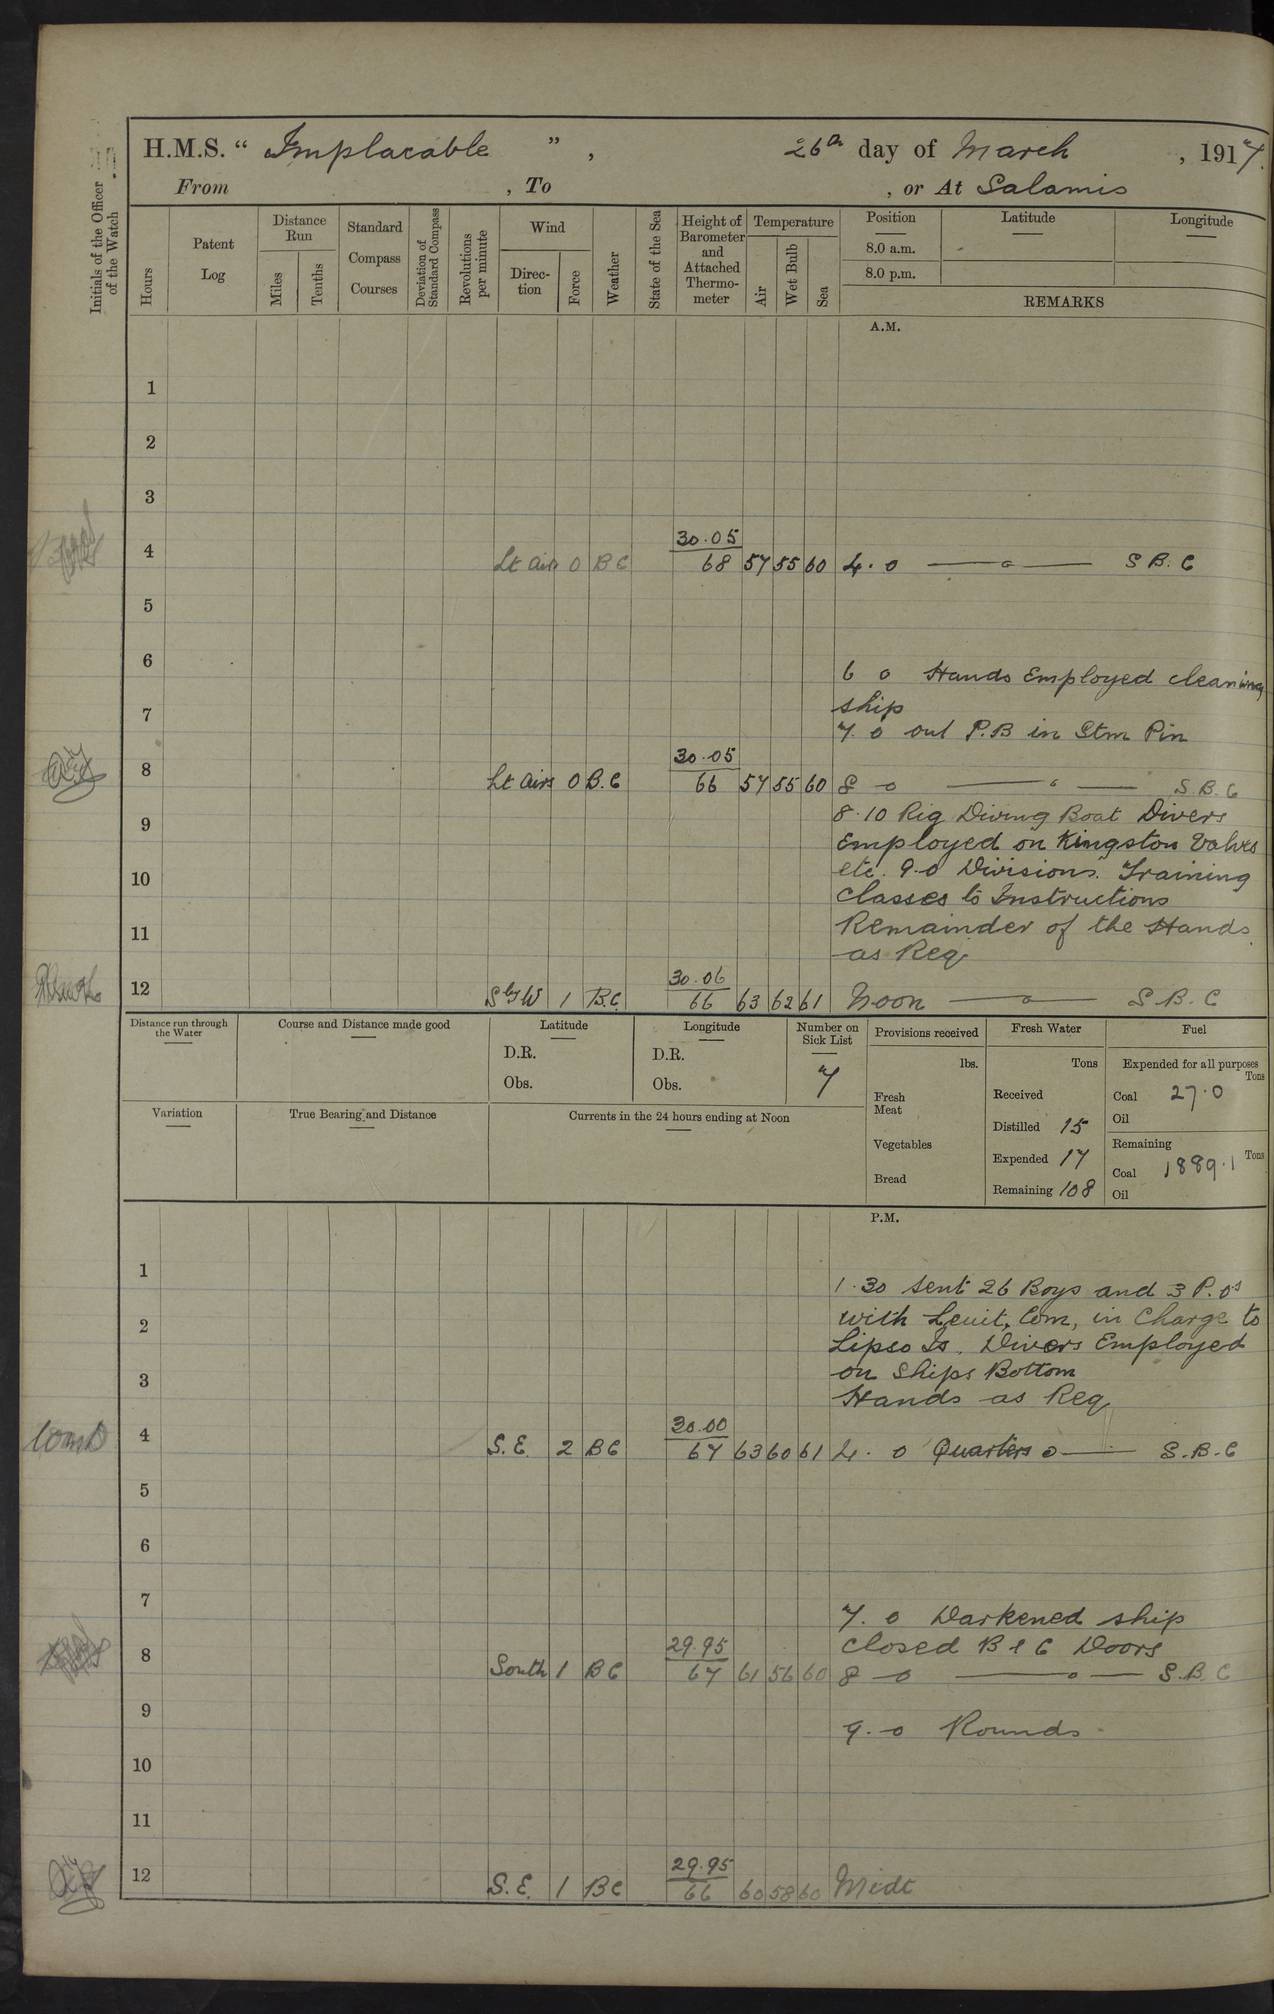 H.M.S. “ Implacable ” , 26th day of March , 1917.
From , To , or At Salamis
Initials of the Officer of the Watch
Hours
Patent Log
Distance Run
Miles
Tenths
Standard Compass Courses
Deviation of Standard Compass
Revolutions per minute
Wind
Direc-tion
Force
Weather
State of the Sea
Height of Barometer and Attached Thermo-meter
Temperature
Air
Wet Bulb
Sea
Position Latitude Longitude
8.0 a.m.
8.0 p.m.
REMARKS
A.M.
1
2
3
30.05
4 Lt airs 0 B C 68 57 55 60 4.0 — o — S B. C
5
6
6 0 Hands Employed cleaning
ship
7
7.0 out P.B in Stm Pin
30.05
8 Lt airs 0 B.C 66 57 55 60 8 0 — " — S.B.C
8.10 Rig Diving Boat Divers
9
Employed on Kingston Valves
etc. 9.0 Divisions. Training
10
Classes to Instructions
Remainder of the Hands
11
as Req
30.06
12 S by W 1 B.C. 66 63 62 61 Noon — o — S.B.C
Distance run through the Water
Course and Distance made good
Latitude
D.R.
Obs.
Longitude
D.R.
Obs.
Number on Sick List
7
Provisions received
lbs.
Fresh Meat
Vegetables
Bread
Fresh Water
Tons
Received
Distilled 15
Expended 17
Remaining 108
Fuel
Expended for all purposes
Tons
Coal 27.0
Oil
Remaining
Tons
Coal 1889.1
Oil
Variation
True Bearing and Distance
Currents in the 24 hours ending at Noon
P.M.
1
1.30 sent 26 Boys and 3 P.Os
2 with Leuit, Com, in Charge to
Lipso Is. Divers Employed
3 on Ships Bottom
Hands as Req
30.00
4 S.E. 2 B C 67 63 60 61 4.0 Quarters o — S.B.C
5
6
7
7.0 Darkened ship
29.95 closed B & C Doors
8 South 1 B C 67 61 56 60 8 0 — o — S.B.C
9
9.0 Rounds.
10
11
29.95
12 S.E. 1 B C 66 60 58 60 Midt